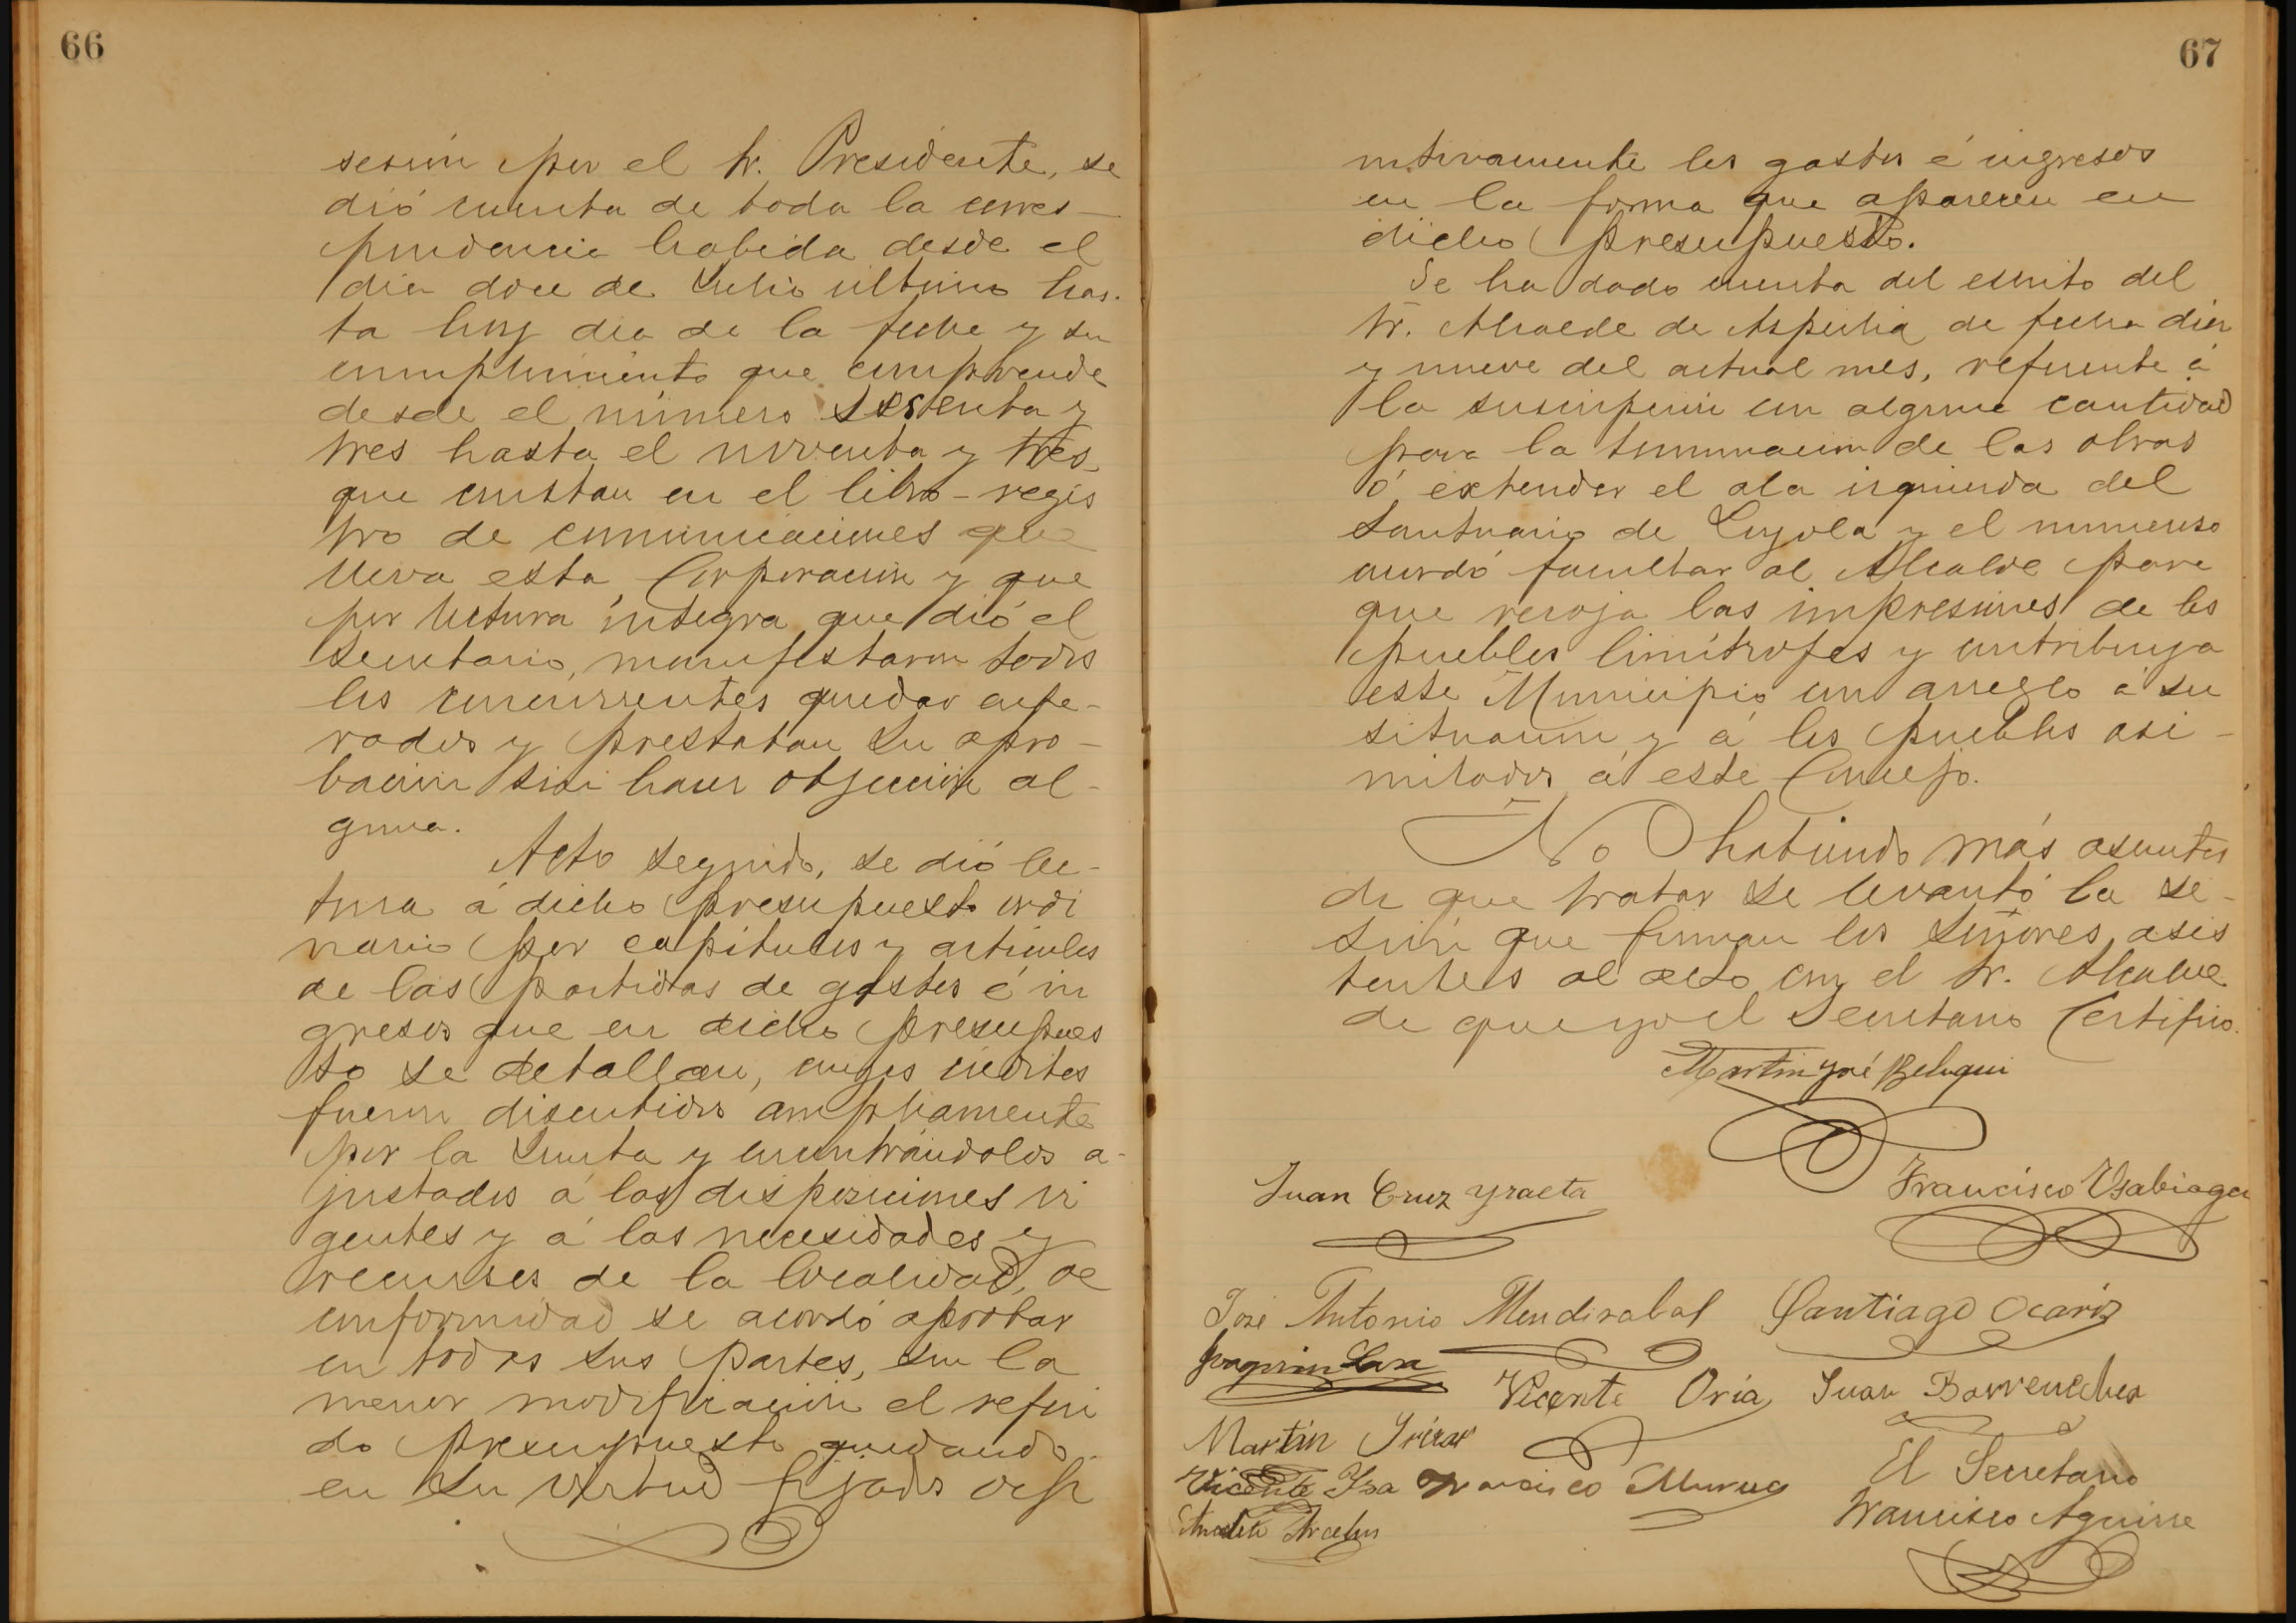 66
sesión por el Sr. Presidente, se
dió cuenta de toda la corres-
pondencia habida desde el
dia doce de Julio último has-
ta hoy dia de la fecha y su
cumplimiento que comprende
desde el número sesenta y
tres hasta el noventa y tres,
que constan en el libro-regis
tro de comunicaciones que
lleva esta Corporación y que
por lectura íntegra que dió el
Secretario, manifestaron todos
los concurrentes quedar ente-
rados y prestaban su apro-
bación sin hacer objeción al-
guna.
Acto seguido, se dió lec-
tura á dicho presupuesto ordi
nario por capítulos y artículos
de las partidas de gastos é in
gresos que en dicho presupues
to se detallan, cuyos créditos
fueron discutidos ampliamente
por la Junta y encontrándolos a-
justados á las disposiciones vi
gentes y á las necesidades y
recursos de la localidad, de
conformidad se acordó aprobar
en todas sus partes, sin la
menor modificación el referi
do presupuesto quedando
en su virtud fijados defi
67
nitivamente los gastos é ingresos
en la forma que aparecen en
dicho presupuesto.
Se ha dado cuenta del escrito del
Sr. Alcalde de Azpeitia de fecha diez
y nueve del actual mes, referente á
la suscripción con alguna cantidad
para la terminación de las obras
ó extender el ala izquierda del
Santuario de Loyola y el numeroso
acordó facultar al Alcalde para
que recoja las impresiones de los
pueblos limítrofes y contribuya
este Municipio con arreglo á su
situación y á los pueblos asi-
milados á este Concejo.
No habiendo más asuntos
de que tratar se levantó la se-
sión que firman los Señores asis
tentes al acto con el Sr. Alcalde
de que yo el Secretario Certifico.
Martin José Beloqui
Juan Cruz Yraeta
Francisco Usabiaga
José Antonio Mendizabal
Santiago Ocariz
Joaquin
Vicente Oria
Juan Barrenechea
Martin Irizar
El Secretario
Vicente Francisco Murua
Francisco Aguirre
Arcelus